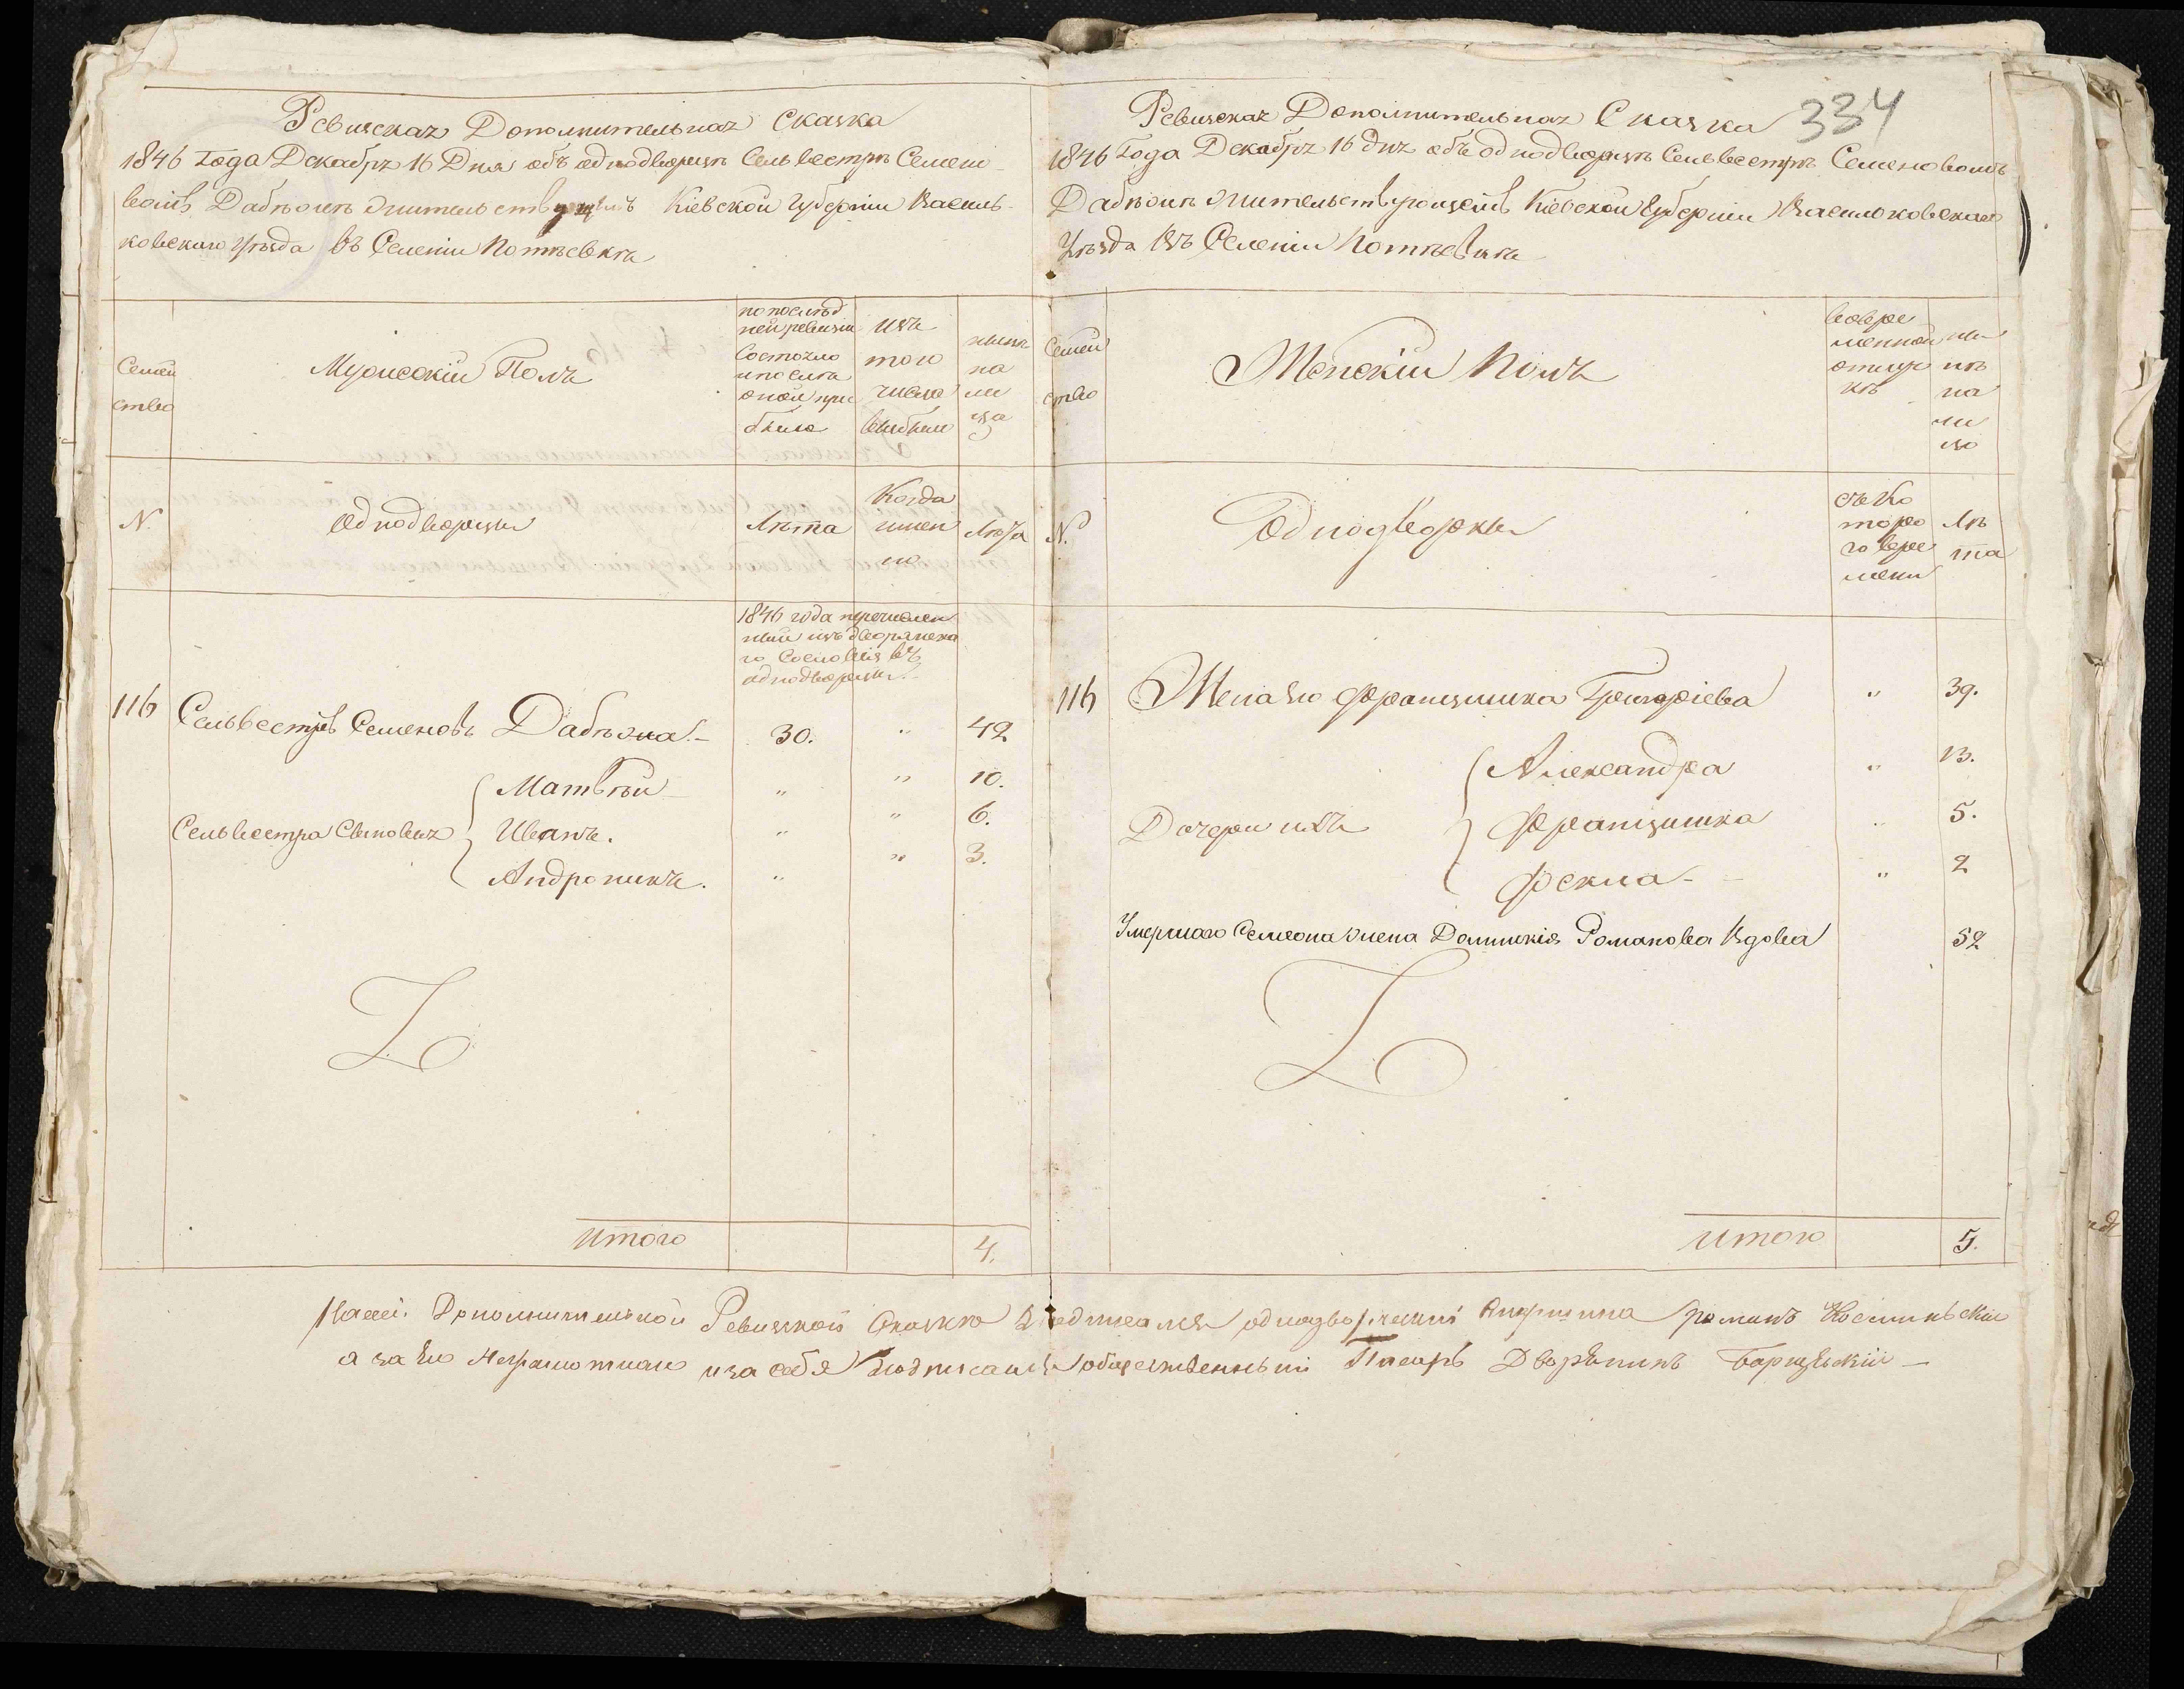 Ревизская Дополнительная Сказка
1846 Года Декабря 16 Дня объ однодворцѣ Сельвестрѣ Семено-
вомъ Дабѣжѣ жительствующемъ Кіевской Губерніи Василь-
ковского Уѣзда въ Селеніи Потѣевкѣ
Семей
ство
Мужескій Полъ
по послѣд
ней ревизіи
Состояло
и послѣ
оной при
было
изъ
того
числа
выбыли
нынѣ
на
ли
цо
N.
однодворцы
Лѣта
Когда
имен
но
Лѣта
1846 года перечислен
ный изъ дворянска
го Сословія въ
однодворцы.
116
Сельвестръ Семеновъ Дабѣжа.-
30.
"
42
Сельвестра Сыновья
Матвѣй
"
"
10.
Иванъ.
"
"
6.
Андроникъ.
"
"
3.
Итого
4.
334
Ревизская Дополнительная Сказка
1846 Года Декабря 16 дня объ однодворцѣ Сельвестрѣ Семеновомъ
Дабѣжѣ жительствующемъ Кіевской Губерніи Васильковскаго
Уѣзда въ Селеніи Потѣевкѣ
Семей
ство
Женскій Полъ
во вре
менной
отлуч
кѣ
ны
нѣ
на
ли
цо
N.
Однодворки
съ ко
торо
го вре
мени
Лѣ
та
116
Жена его Францишка Григоріева
"
39.
Дочери ихъ
Александра
"
13.
Францишка
"
5.
Фекла-
"
2
Умершаго Семеона жена Доминикія Романова Вдова
52
Итого
5.
Дополнительной Ревизской Сказкѣ подписался однодворческій Старшина Романъ
а за его неграмотнаго и за себя подписался общественный Писарь Дворянинъ